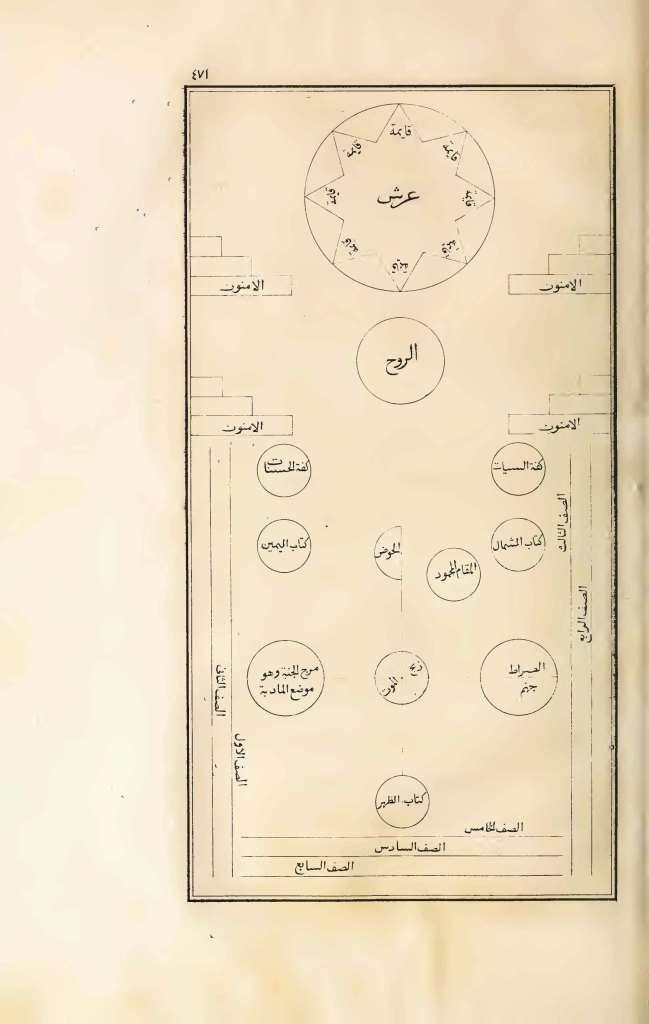 ٤٧١
قايمة
قايمة
قايمة
قايمة
قايمة
قايمة
قايمة
قايمة
عرش
الامنون
الامنون
الروح
الامنون
الامنون
كفة السيات
كفة الحسنات
كتاب الشمال
كتاب اليمين
الحوض
المقام المحمود
الصف الثالث
الصف الرابع
الصراط
جهنم
ذبح
الموت
مرج الجنة وهو
موضع المادبة
الصف الثانى
الصف الاول
كتاب الظهر
الصف الخامس
الصف السادس
الصف السابع